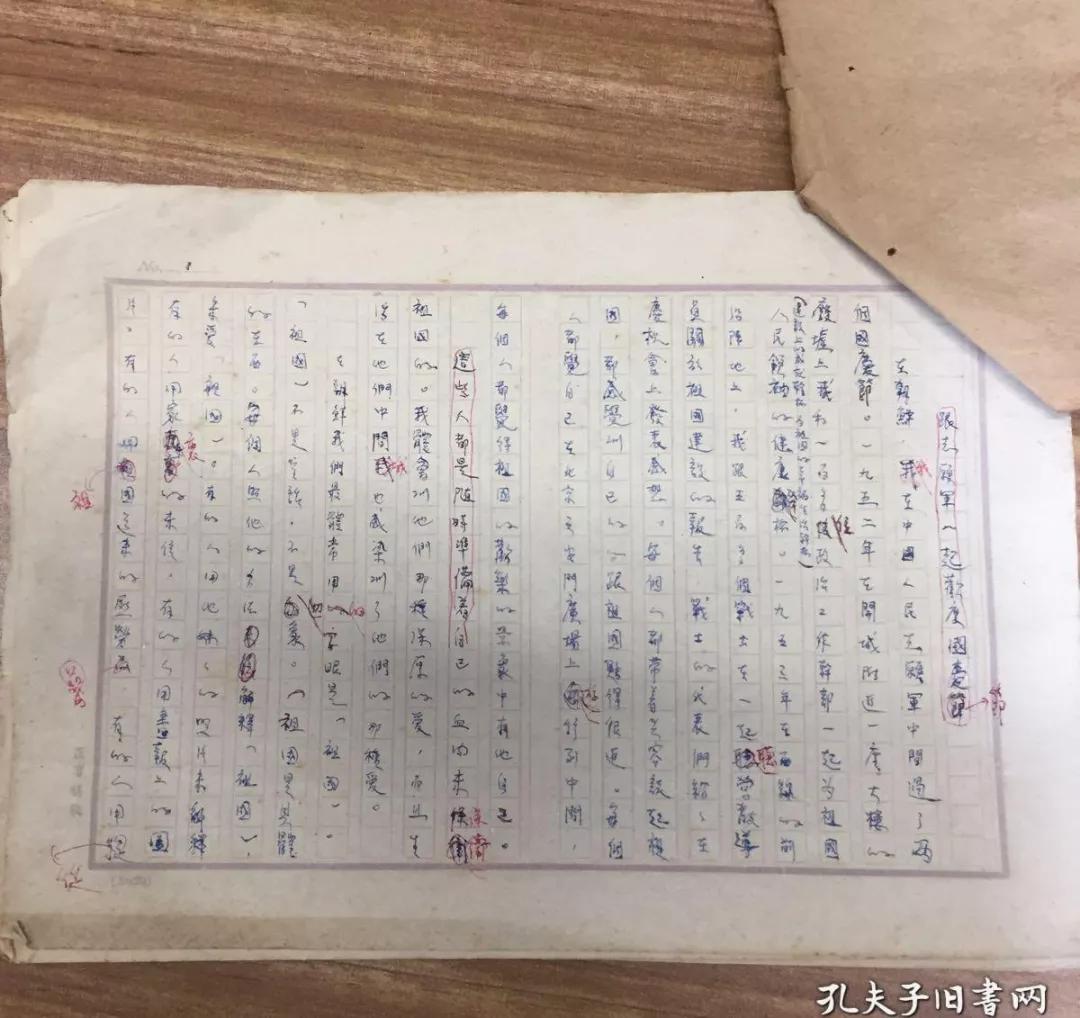 跟志願軍一起歡度國慶節
在朝鮮，我在中國人民志願軍中間過了兩
個國慶節。一九五二年在開城附近一座大樓的
廢墟上我和一百多位政治工作幹部一起為祖國
人民領袖的健康乾杯。一九五三年在西線的前
沿陣地上，我跟五百多個戰士在一起聽
員關於祖國建設的報告，戰士的代表們給、在
慶祝會上發表感想。每個人都帶着笑容談起祖
國，都感覺到自己的心跟祖國貼得很近。每個
人都覺自己在北京天安門廣場上遊行列中間，
每個人都覺得祖國的歡樂的景象中有他自己。
這些人都是隨時準備着自己的血肉來保衛
祖國的。我體會到他們那樣深厚的愛，而且生
活在他們中間我也感染到了他們的那種愛。
在朝鮮我們最常用的字眼是「祖國」。
「祖國」不是空話，不是抽象。「祖國是具體
的東西。每個人照他的方法解釋「祖國」，
來愛「祖國」。有的人用他的照片來解釋
有的人用家裏的來信，有的人用畫報上的圖
片。有的人用祖國送來的慰勞品，有的人用從
孔夫子旧書网